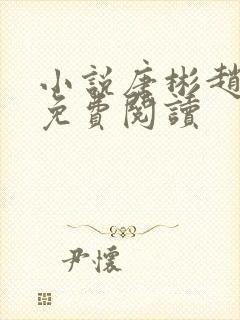 小説唐彬趙
免費閱讀
尹懷